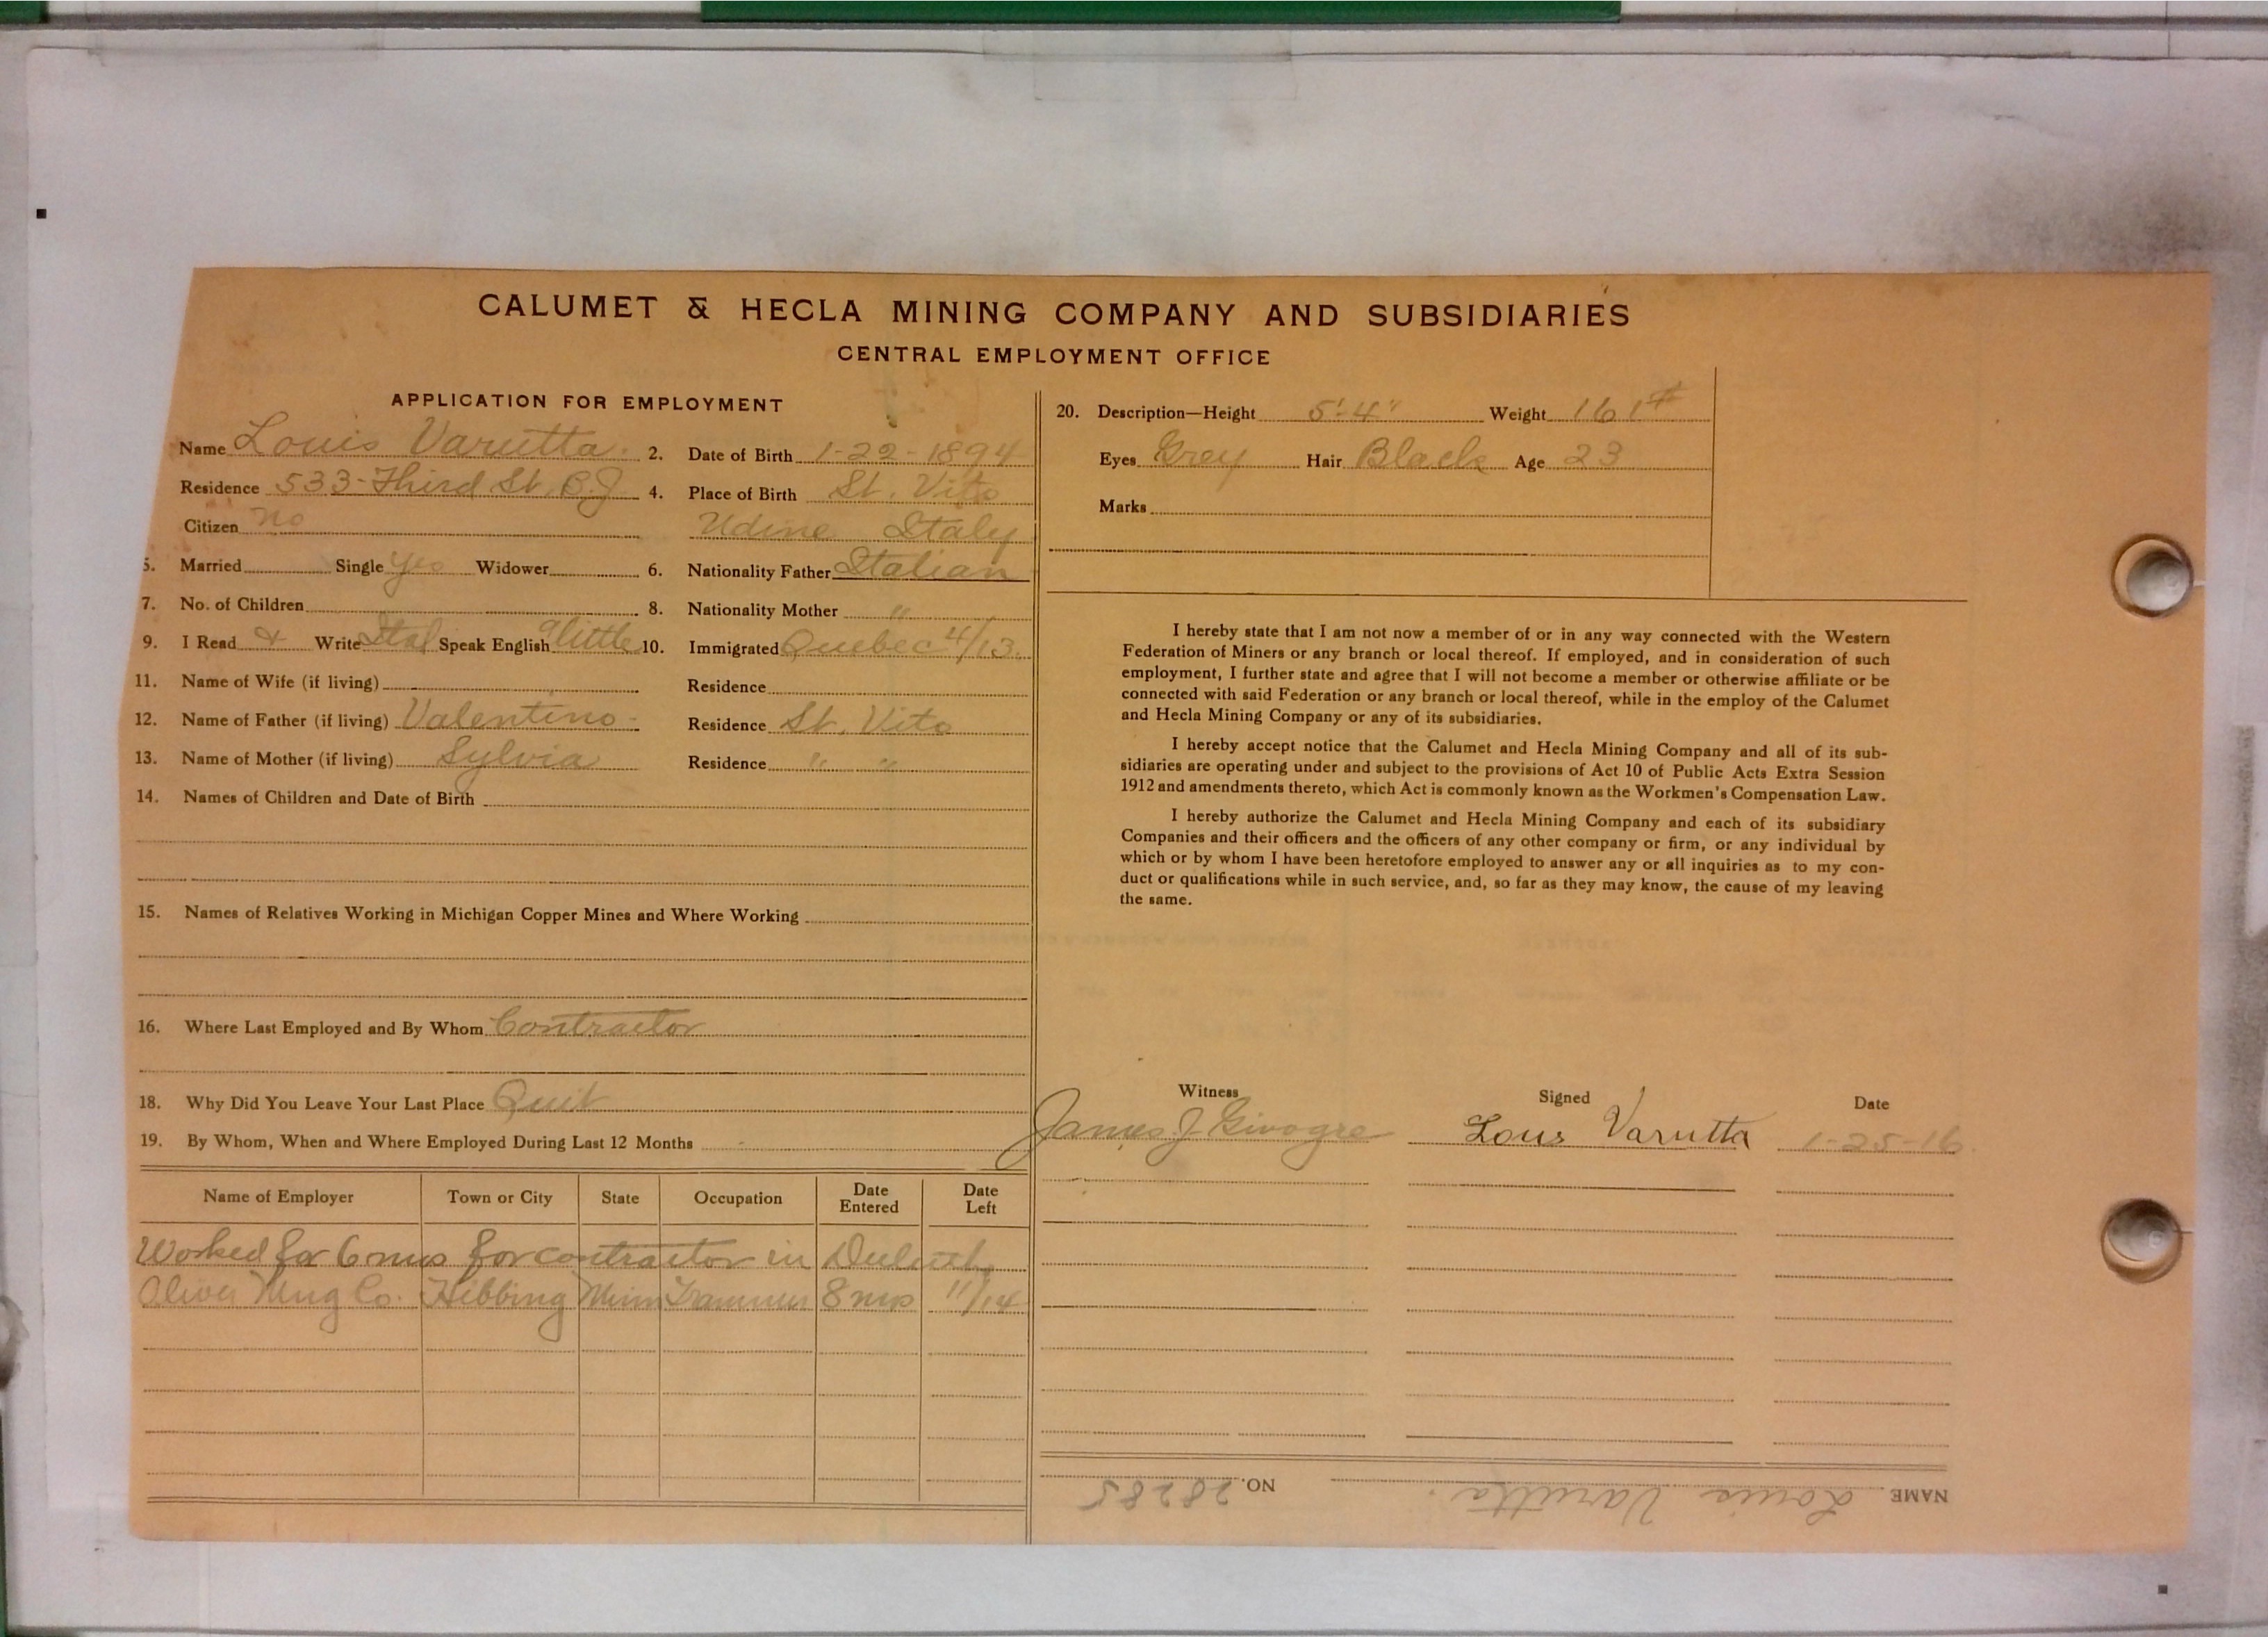 CALUMET & HECLA MINING COMPANY AND SUBSIDIARIES
CENTRAL EMPLOYMENT OFFICE
APPLICATION FOR EMPLOYMENT
Name Louis Varutta. 2. Date of Birth 1-22-1894
Residence 533-Third St. 4. Place of Birth St. Vito
Citizen no Udine Italy
5. Married Single yes Widower 6. Nationality Father Italian
7. No. of Children 8. Nationality Mother "
9. I Read & Write Ital Speak English a little 10. Immigrated Quebec 4/13.
11. Name of Wife (if living) Residence
12. Name of Father (if living) Valentino Residence St. Vito
13. Name of Mother (if living) Sylvia Residence " "
14. Names of Children and Date of Birth
15. Names of Relatives Working in Michigan Copper Mines and Where Working
16. Where Last Employed and By Whom Contractor
18. Why Did You Leave Your Last Place Quit
19. By Whom, When and Where Employed During Last 12 Months
Name of Employer Town or City State Occupation Date Entered Date Left
Worked for 6 mos for contractor in Duluth
Oliver Mng Co. Hibbing Minn Trammer 8 mos 11/14
20. Description—Height 5'-4" Weight 161#
Eyes Grey Hair Black Age 23
Marks
I hereby state that I am not now a member of or in any way connected with the Western
Federation of Miners or any branch or local thereof. If employed, and in consideration of such
employment, I further state and agree that I will not become a member or otherwise affiliate or be
connected with said Federation or any branch or local thereof, while in the employ of the Calumet
and Hecla Mining Company or any of its subsidiaries.
I hereby accept notice that the Calumet and Hecla Mining Company and all of its sub-
sidiaries are operating under and subject to the provisions of Act 10 of Public Acts Extra Session
1912 and amendments thereto, which Act is commonly known as the Workmen's Compensation Law.
I hereby authorize the Calumet and Hecla Mining Company and each of its subsidiary
Companies and their officers and the officers of any other company or firm, or any individual by
which or by whom I have been heretofore employed to answer any or all inquiries as to my con-
duct or qualifications while in such service, and, so far as they may know, the cause of my leaving
the same.
Witness Signed Date
James J Givogre Louis Varutta 1-25-16
NAME Louis Varutta. NO. 28285